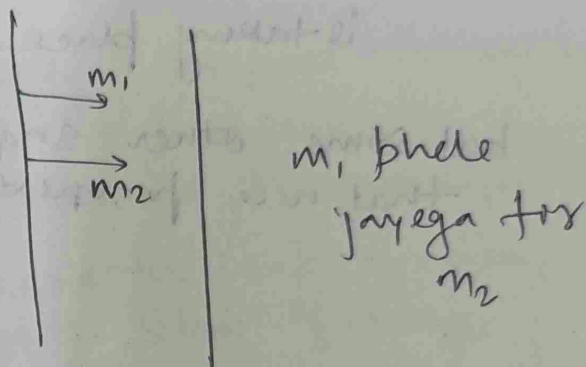 m₁
m₂
m₁ phele
jayega for
m₂